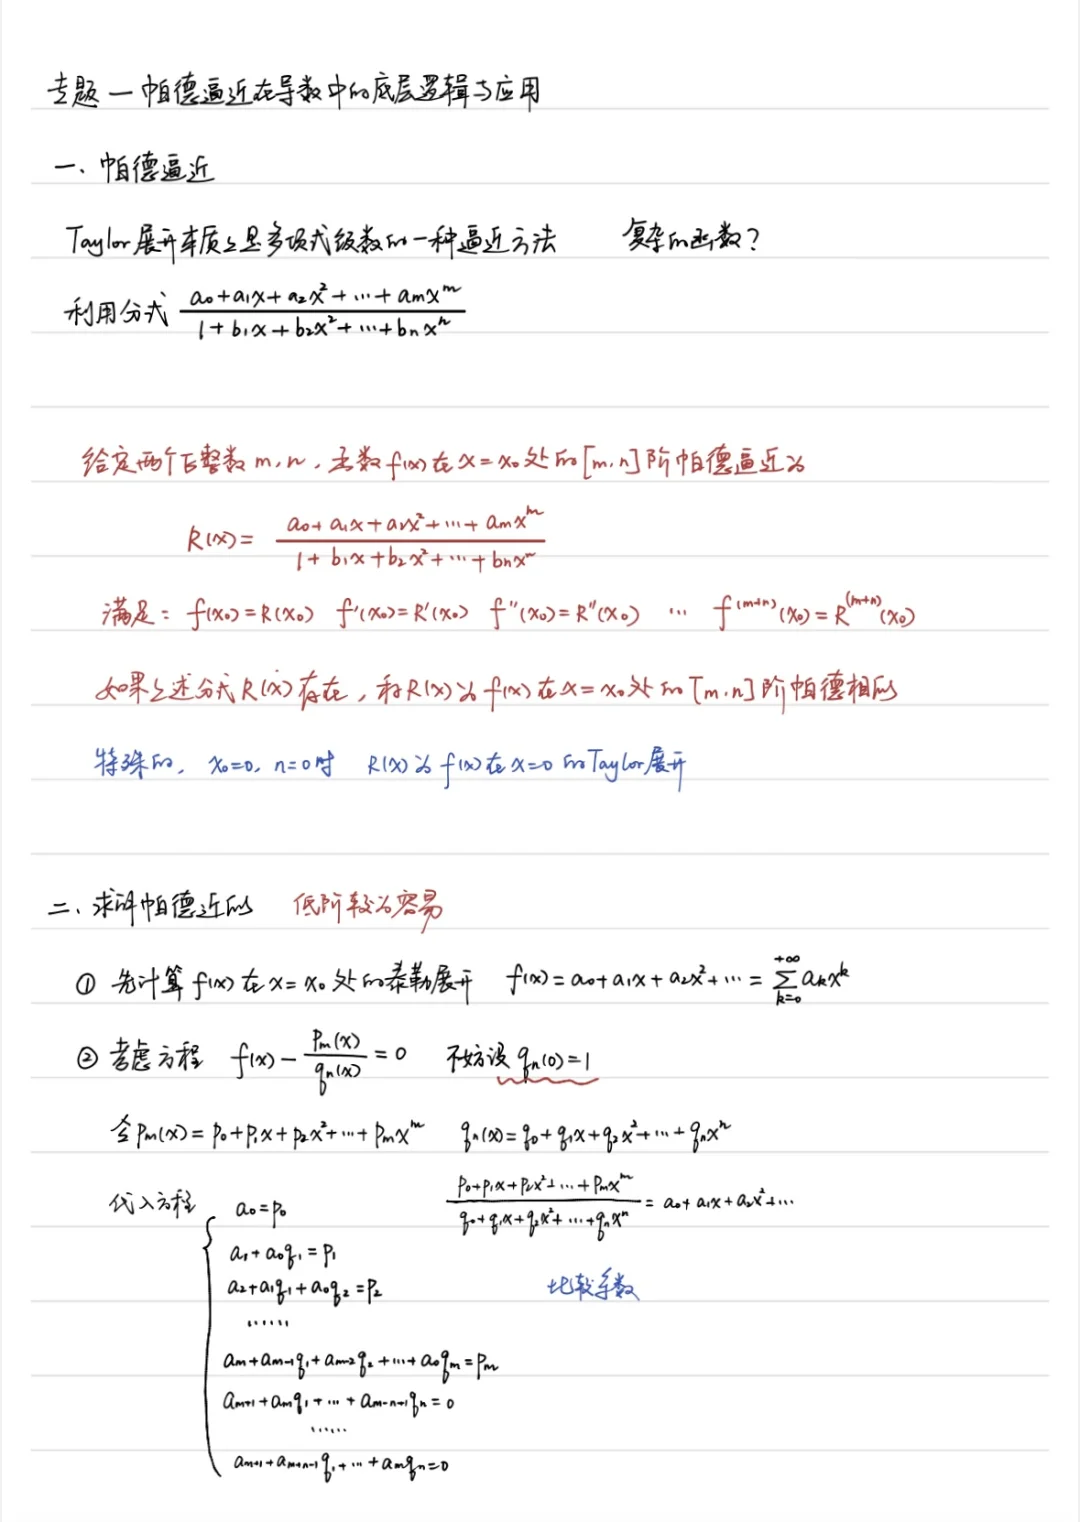 专题一 帕德逼近在导数中的底层逻辑与应用
一、帕德逼近
Taylor展开本质上是多项式级数的一种逼近方法 复杂的函数？
利用分式 (a₀+a₁x+a₂x²+…+aₘxᵐ)/(1+b₁x+b₂x²+…+bₙxⁿ)
给定两个正整数m,n，函数f(x)在x=x₀处的[m,n]阶帕德逼近为
R(x)= (a₀+a₁x+a₂x²+…+aₘxᵐ)/(1+b₁x+b₂x²+…+bₙxⁿ)
满足：f(x₀)=R(x₀) f'(x₀)=R'(x₀) f''(x₀)=R''(x₀) … f⁽ᵐ⁺ⁿ⁾(x₀)=R⁽ᵐ⁺ⁿ⁾(x₀)
如果上述分式R(x)存在，称R(x)为f(x)在x=x₀处的[m,n]阶帕德相似
特殊的，x₀=0, n=0时 R(x)为f(x)在x=0的Taylor展开
二、求解帕德近似 低阶较为容易
① 先计算f(x)在x=x₀处的泰勒展开 f(x)=a₀+a₁x+a₂x²+…=∑_{k=0}^{+∞} aₖxᵏ
② 考虑方程 f(x)-pₘ(x)/qₙ(x)=0 不妨设qₙ(0)=1
令pₘ(x)=p₀+p₁x+p₂x²+…+pₘxᵐ qₙ(x)=q₀+q₁x+q₂x²+…+qₙxⁿ
代入方程 (p₀+p₁x+p₂x²+…+pₘxᵐ)/(q₀+q₁x+q₂x²+…+qₙxⁿ)=a₀+a₁x+a₂x²+…
a₀=p₀
a₁+a₀q₁=p₁
a₂+a₁q₁+a₀q₂=p₂ 比较系数
……
aₘ+aₘ₋₁q₁+aₘ₋₂q₂+…+a₀qₘ=pₘ
aₘ₊₁+aₘq₁+…+aₘ₋ₙ₊₁qₙ=0
……
aₘ₊ₙ+aₘ₊ₙ₋₁q₁+…+aₘqₙ=0